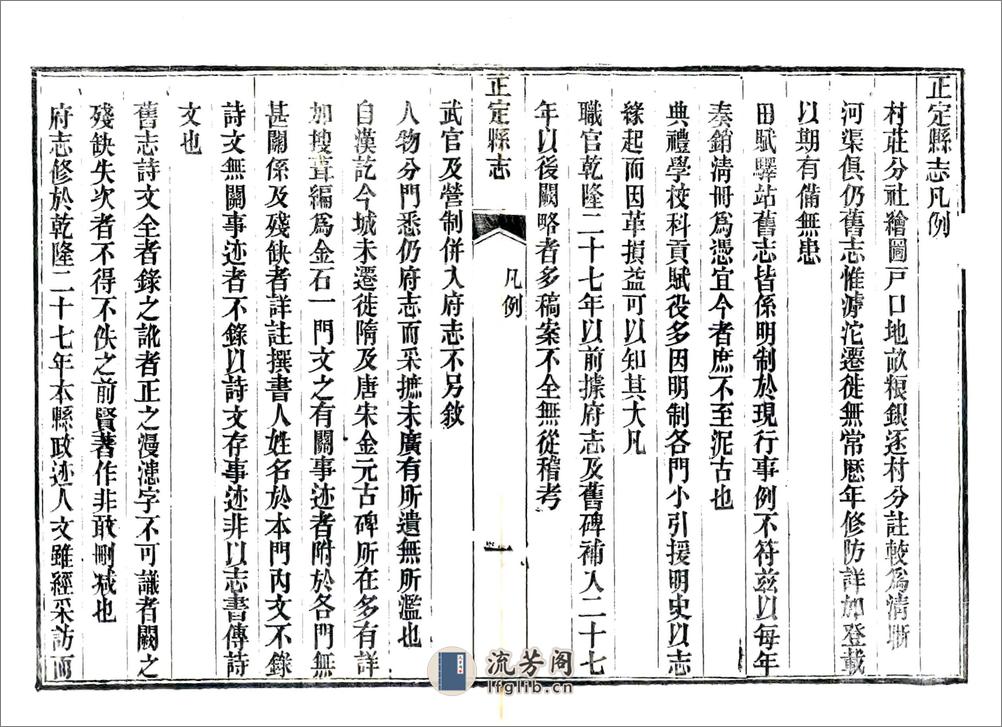 正定縣志凡例
村莊分社繪圖戸口地畝糧銀逐村分註較爲清晰
河渠俱仍舊志惟滹沱遷徙無常歴年修防詳加登載
以期有備無患
田賦驛站舊志皆係明制於現行事例不符兹以每年
奏銷清冊爲憑宜今者庶不至泥古也
典禮學校科貢賦役多因明制各門小引援明史以志
緣起而因革損益可以知其大凡
職官乾隆二十七年以前據府志及舊碑補入二十七
年以後闕略者多稿案不全無從稽考
正定縣志
凡例
一
武官及營制併入府志不另敘
人物分門悉仍府志而采摭未廣有所遺無所濫也
自漢訖今城未遷徙隋及唐宋金元古碑所在多有詳
加搜葺編爲金石一門文之有關事迹者附於各門無
甚關係及殘缺者詳註撰書人姓名於本門内文不錄
詩文無關事迹者不錄以詩文存事迹非以志書傳詩
文也
舊志詩文全者錄之訛者正之漫漶字不可識者闕之
殘缺失次者不得不佚之前賢著作非敢刪减也
府志修於乾隆二十七年本縣政迹人文雖經采訪而
流芳阁
lfglib.cn